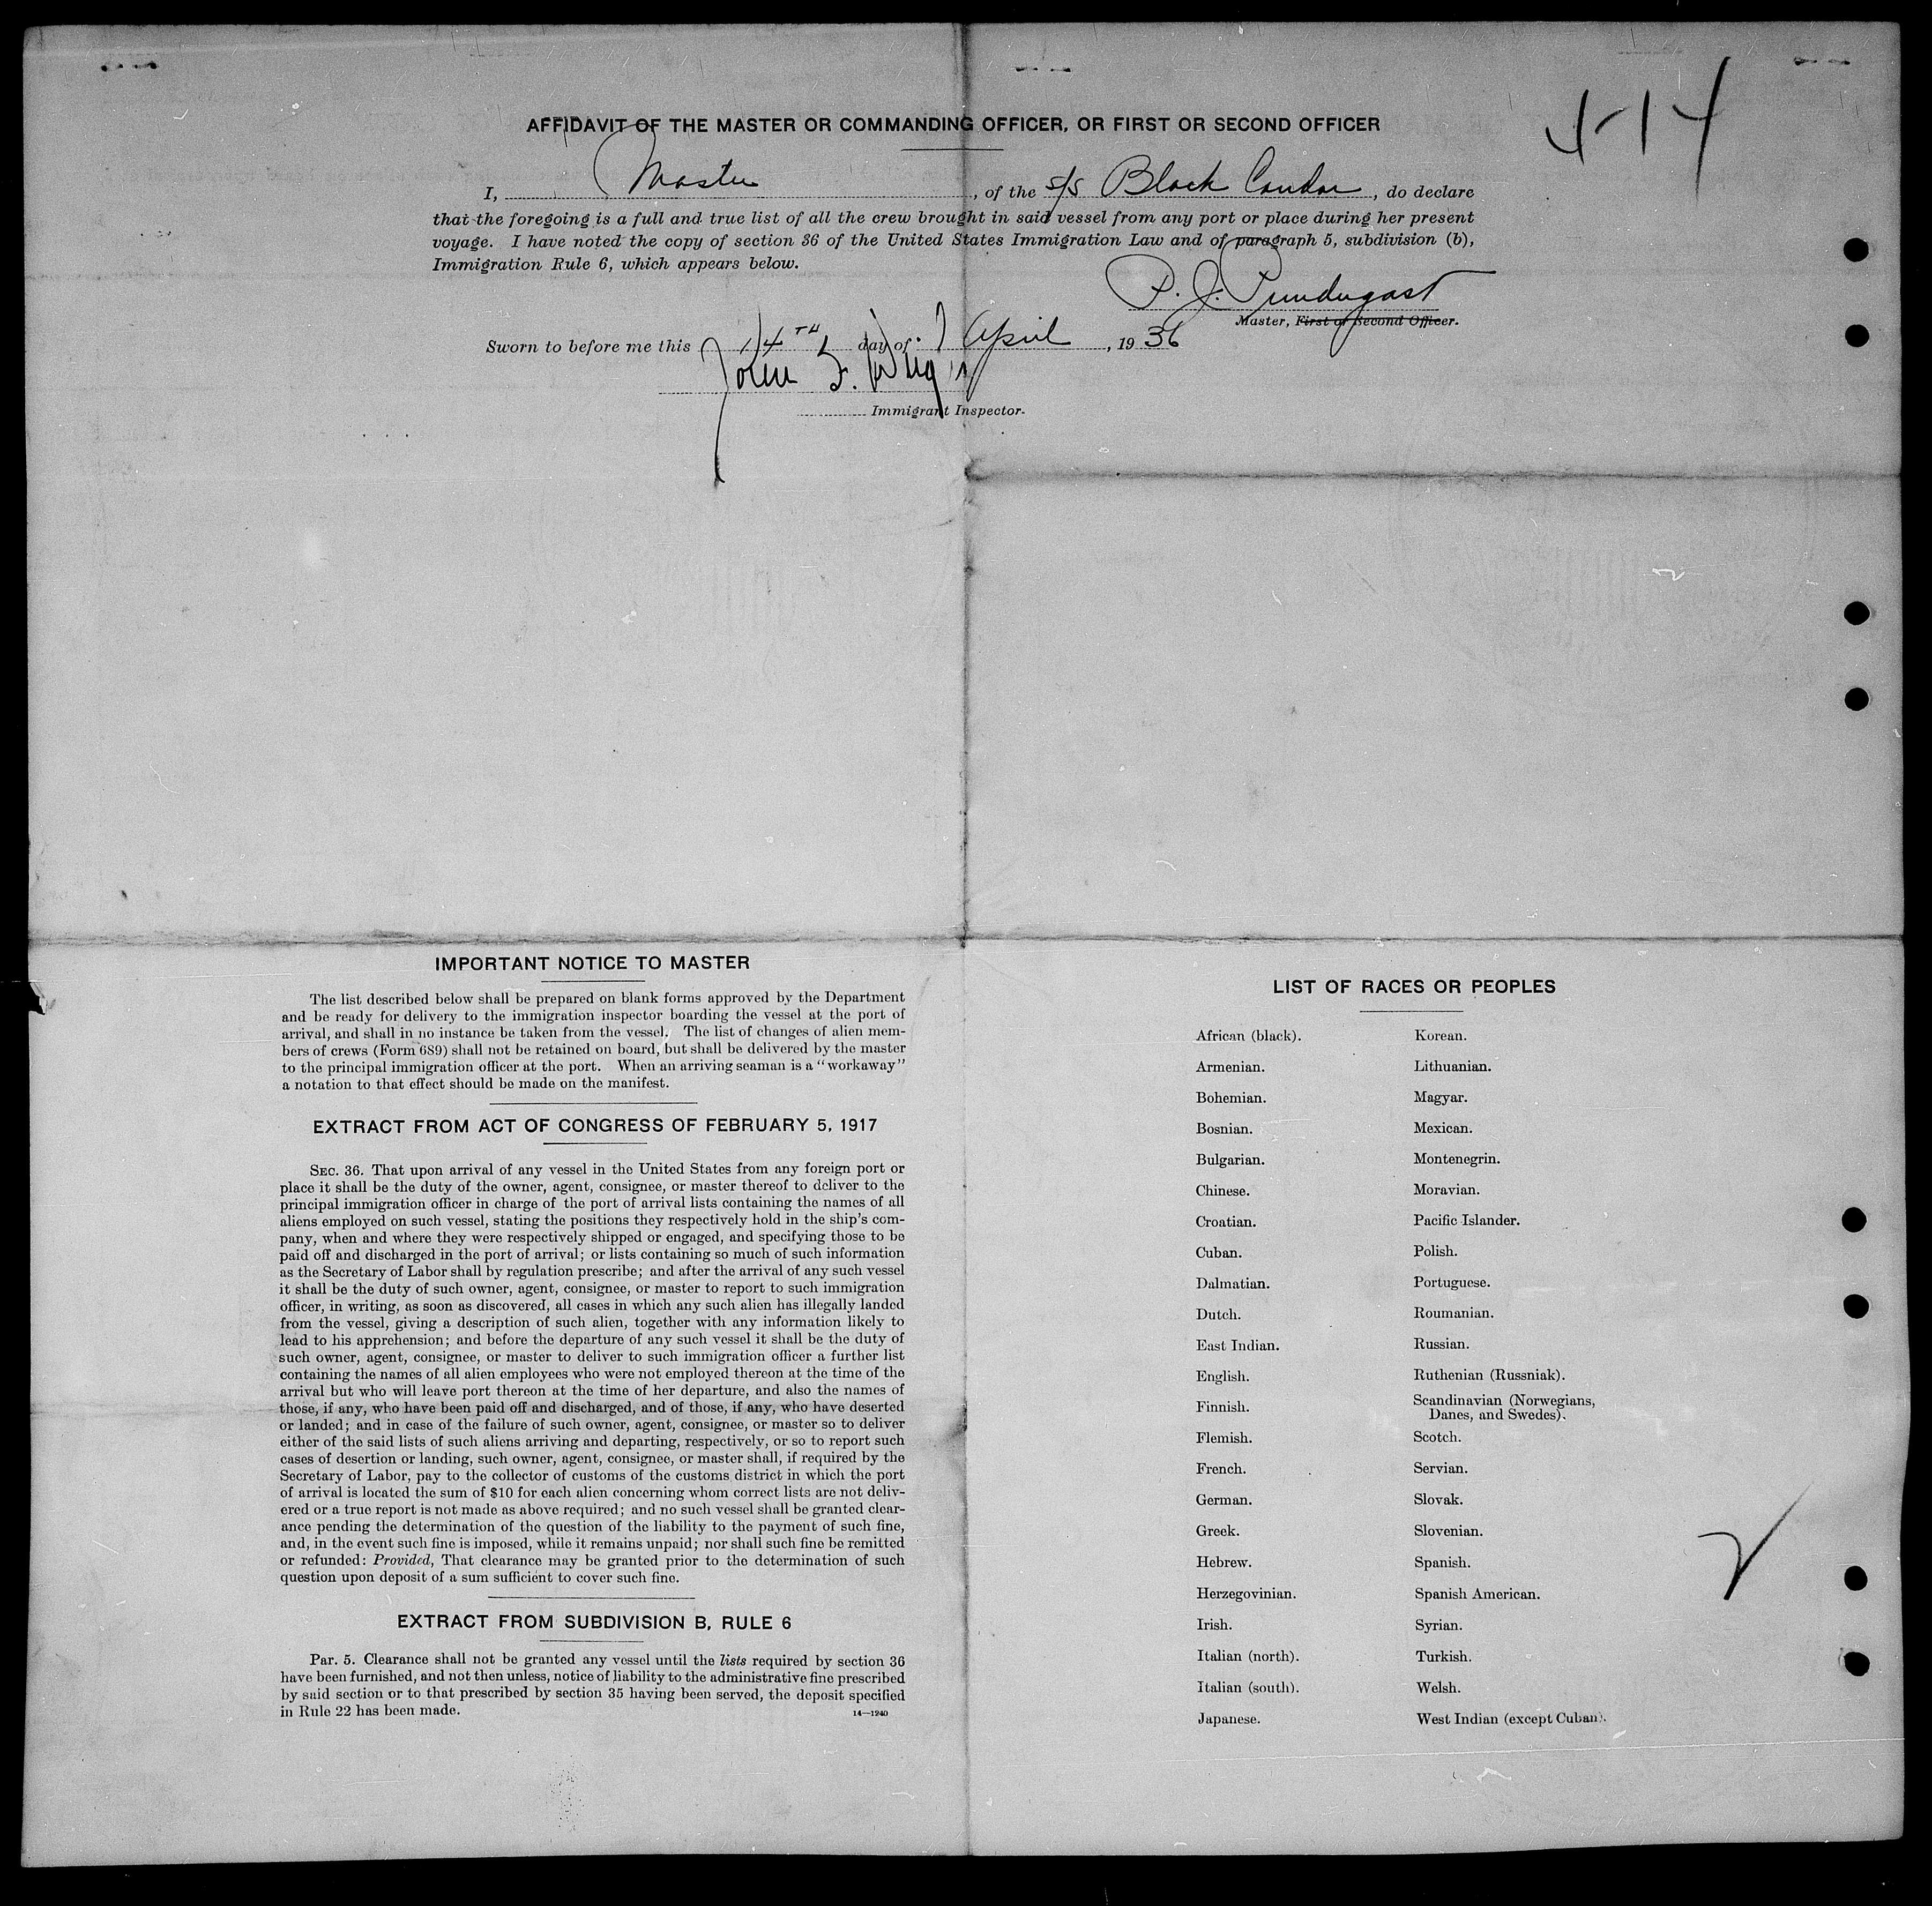 4-14
AFFIDAVIT OF THE MASTER OR COMMANDING OFFICER, OR FIRST OR SECOND OFFICER
I, Master, of the S/S Black Condor, do declare
that the foregoing is a full and true list of all the crew brought in said vessel from any port or place during her present
voyage. I have noted the copy of section 36 of the United States Immigration Law and of paragraph 5, subdivision (b),
Immigration Rule 6, which appears below.
P. J.
Master, First or Second Officer.
Sworn to before me this 14TH day of April, 1936
John F.
Immigrant Inspector.
IMPORTANT NOTICE TO MASTER
The list described below shall be prepared on blank forms approved by the Department
and be ready for delivery to the immigration inspector boarding the vessel at the port of
arrival, and shall in no instance be taken from the vessel. The list of changes of alien mem-
bers of crews (Form 689) shall not be retained on board, but shall be delivered by the master
to the principal immigration officer at the port. When an arriving seaman is a "workaway"
a notation to that effect should be made on the manifest.
EXTRACT FROM ACT OF CONGRESS OF FEBRUARY 5, 1917
SEC. 36. That upon arrival of any vessel in the United States from any foreign port or
place it shall be the duty of the owner, agent, consignee, or master thereof to deliver to the
principal immigration officer in charge of the port of arrival lists containing the names of all
aliens employed on such vessel, stating the positions they respectively hold in the ship's com-
pany, when and where they were respectively shipped or engaged, and specifying those to be
paid off and discharged in the port of arrival; or lists containing so much of such information
as the Secretary of Labor shall by regulation prescribe; and after the arrival of any such vessel
it shall be the duty of such owner, agent, consignee, or master to report to such immigration
officer, in writing, as soon as discovered, all cases in which any such alien has illegally landed
from the vessel, giving a description of such alien, together with any information likely to
lead to his apprehension; and before the departure of any such vessel it shall be the duty of
such owner, agent, consignee, or master to deliver to such immigration officer a further list
containing the names of all alien employees who were not employed thereon at the time of the
arrival but who will leave port thereon at the time of her departure, and also the names of
those, if any, who have been paid off and discharged, and of those, if any, who have deserted
or landed; and in case of the failure of such owner, agent, consignee, or master so to deliver
either of the said lists of such aliens arriving and departing, respectively, or so to report such
cases of desertion or landing, such owner, agent, consignee, or master shall, if required by the
Secretary of Labor, pay to the collector of customs of the customs district in which the port
of arrival is located the sum of $10 for each alien concerning whom correct lists are not deliv-
ered or a true report is not made as above required; and no such vessel shall be granted clear-
ance pending the determination of the question of the liability to the payment of such fine,
and, in the event such fine is imposed, while it remains unpaid; nor shall such fine be remitted
or refunded: Provided, That clearance may be granted prior to the determination of such
question upon deposit of a sum sufficient to cover such fine.
EXTRACT FROM SUBDIVISION B, RULE 6
Par. 5. Clearance shall not be granted any vessel until the lists required by section 36
have been furnished, and not then unless, notice of liability to the administrative fine prescribed
by said section or to that prescribed by section 35 having been served, the deposit specified
in Rule 22 has been made.
14—1240
LIST OF RACES OR PEOPLES
African (black).
Armenian.
Bohemian.
Bosnian.
Bulgarian.
Chinese.
Croatian.
Cuban.
Dalmatian.
Dutch.
East Indian.
English.
Finnish.
Flemish.
French.
German.
Greek.
Hebrew.
Herzegovinian.
Irish.
Italian (north).
Italian (south).
Japanese.
Korean.
Lithuanian.
Magyar.
Mexican.
Montenegrin.
Moravian.
Pacific Islander.
Polish.
Portuguese.
Roumanian.
Russian.
Ruthenian (Russniak).
Scandinavian (Norwegians,
Danes, and Swedes).
Scotch.
Servian.
Slovak.
Slovenian.
Spanish.
Spanish American.
Syrian.
Turkish.
Welsh.
West Indian (except Cuban).